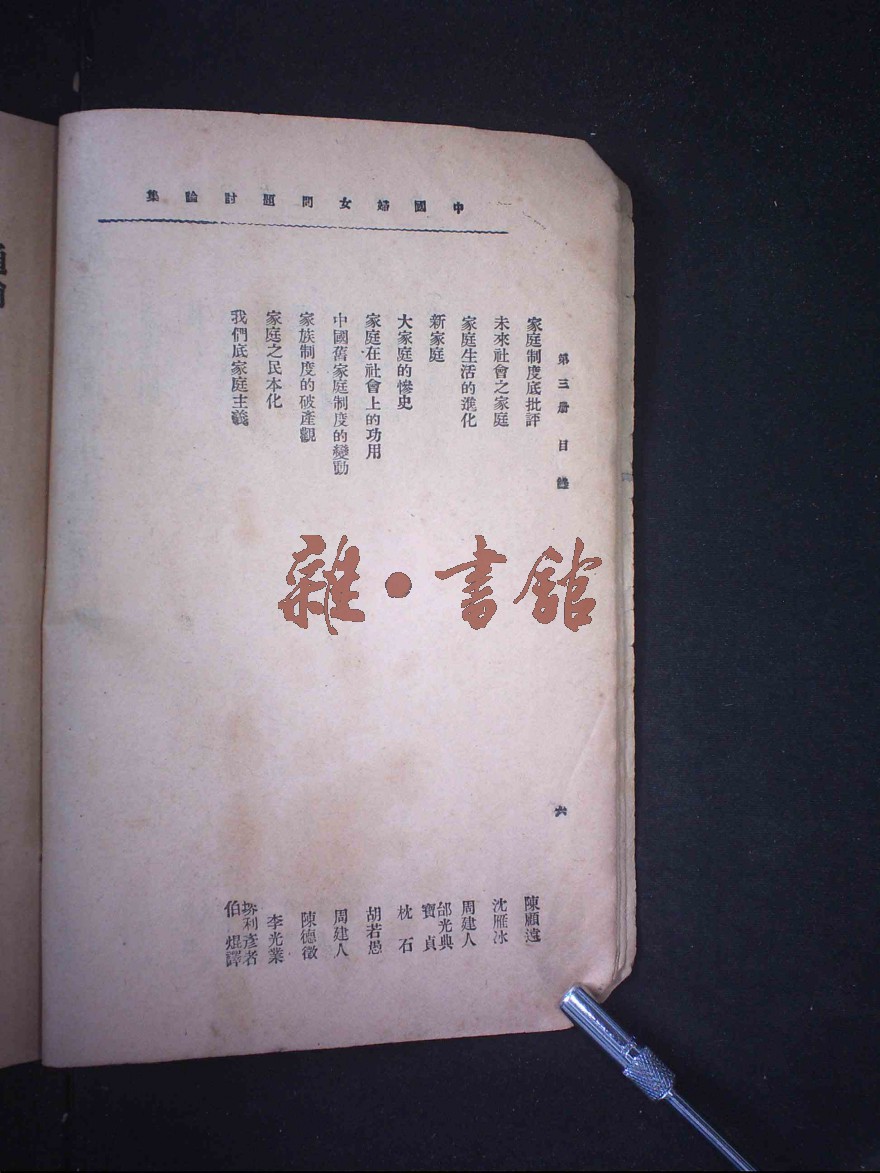 中國婦女問題討論集
第三册目錄
六
家庭制度底批評
陳顧遠
未來社會之家庭
沈雁冰
家庭生活的進化
周建人
新家庭
邰光典
寶貞
大家庭的慘史
枕石
家庭在社會上的功用
胡若愚
中國舊家庭制度的變動
周建人
家族制度的破產觀
陳德徵
家庭之民本化
李光業
我們底家庭主義
堺利彥著
伯焜譯
雜·書館